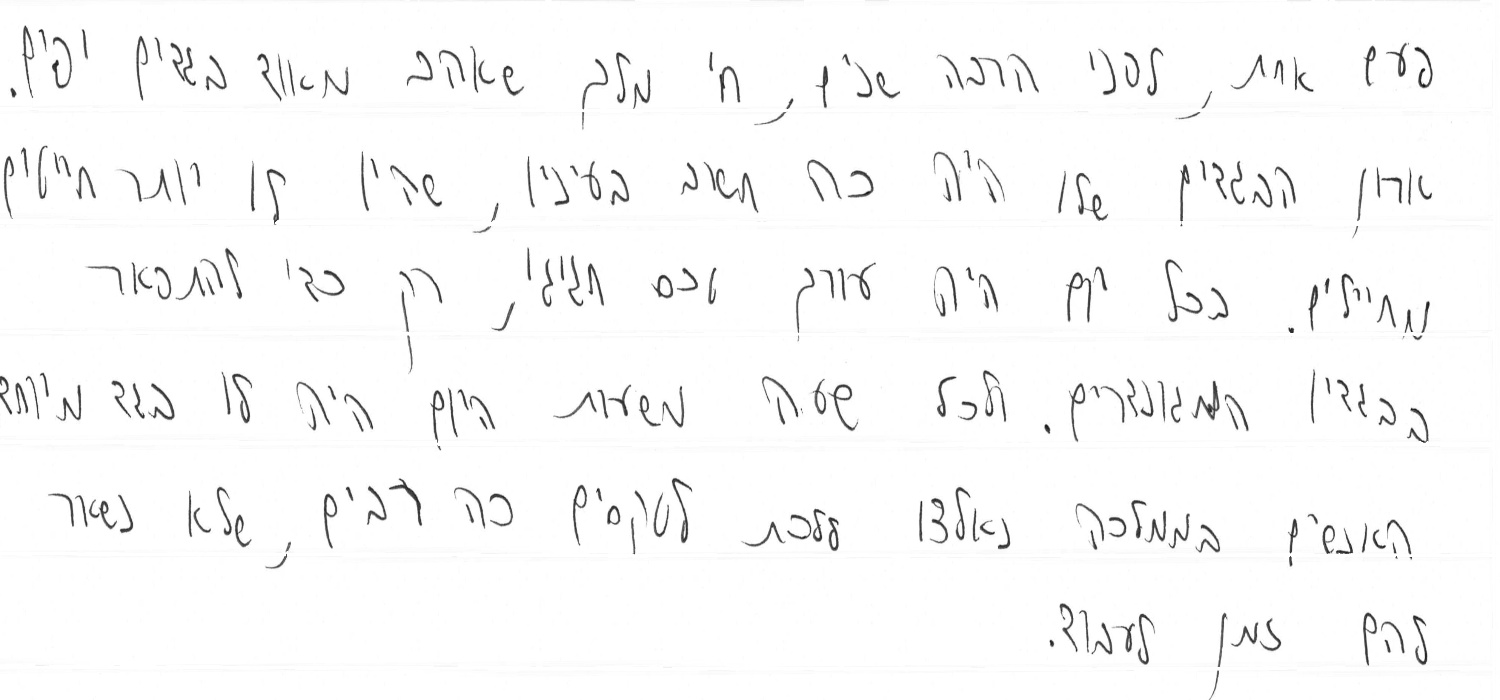 פעם אחת, לפני הרבה שנים, חי מלך שאהב מאוד בגדים יפים.
ארון הבגדים שלו היה כה חשוב בעיניו, שהיו לו יותר חייטים
מחיילים. בכל יום היה עורך טכס חגיגי, רק כדי להתפאר
בבגדיו המגונדרים. ולכל שעה משעות היום היה לו בגד מיוחד
האנשים בממלכה נאלצו ללכת לטקסים כה רבים, שלא נשאר
להם זמן לעבוד.